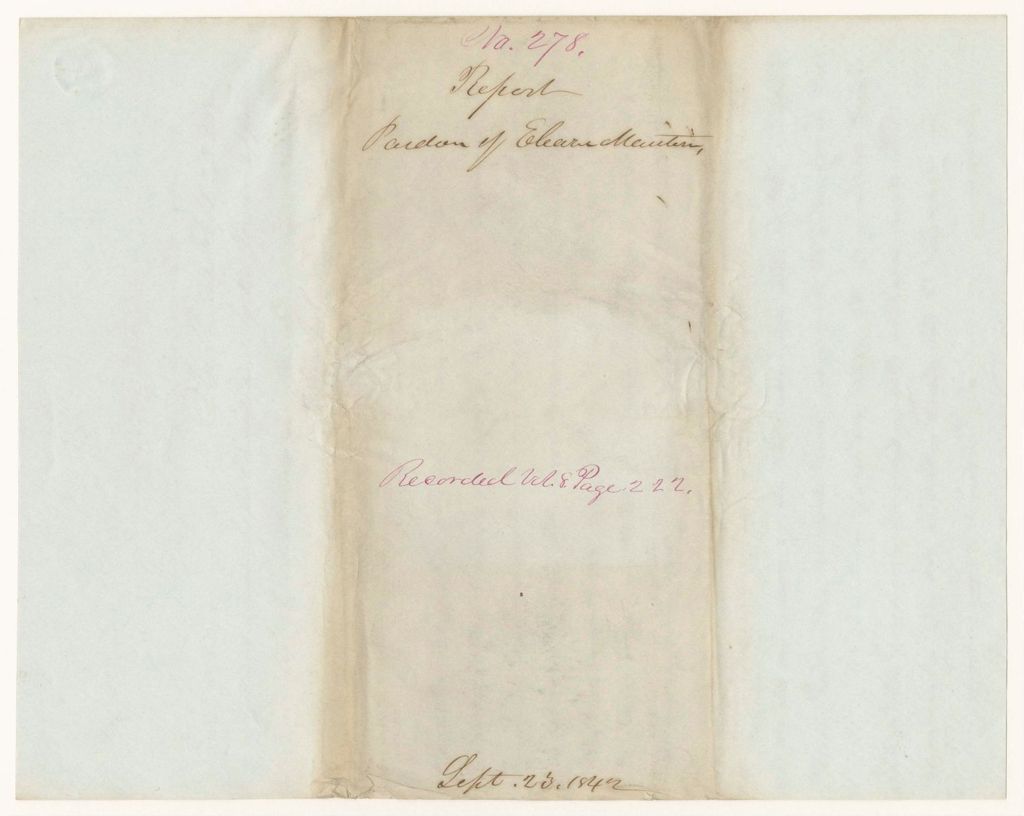 No. 278.
Report
Pardon of Elcarn Martin,
Recorded Vol. 8 Page. 222.
Sept. 23. 1842